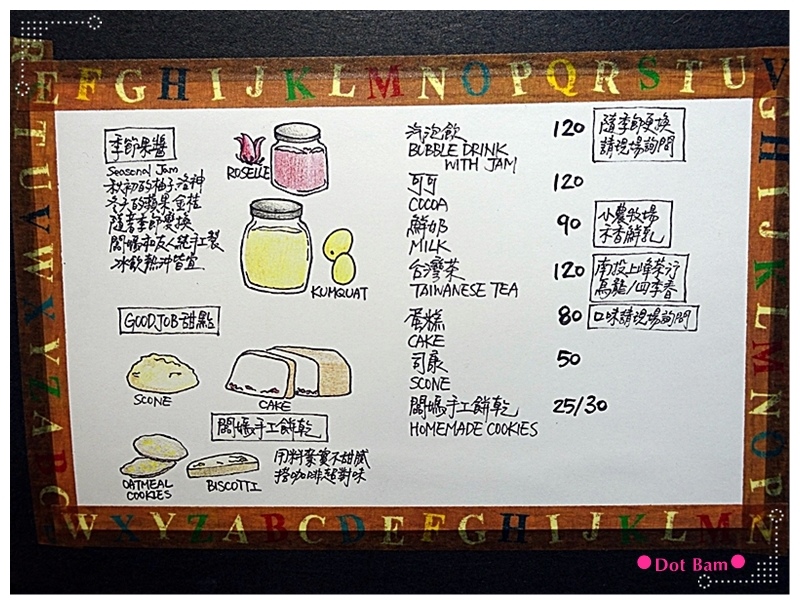 E F G H I J K L M N O P Q R S T U V
季節果醬
Seasonal Jam
秋初的柚子.洛神
冬天的蘋果.金桂
隨著季節變換
闆娘和友人純手製
冰飲熱沖皆宜
ROSELLE
KUMQUAT
GOODJOB 甜點
SCONE
CAKE
闆娘手工餅乾
OATMEAL
COOKIES
BISCOTTI
用料紮實不甜膩
搭咖啡超對味
汽泡飲 120
BUBBLE DRINK
WITH JAM
隨季節更換
請現場詢問
可可 120
COCOA
鮮奶 90
MILK
小農牧場
禾香鮮乳
台灣茶 120
TAIWANESE TEA
南投上峰茶行
烏龍/四季春
蛋糕 80
CAKE
口味請現場詢問
司康 50
SCONE
闆娘手工餅乾 25/30
HOMEMADE COOKIES
T U V W X Y Z A B C
G H I J K L M N O P
W X Y Z A B C D E F G H I J K L M N
Dot Bam